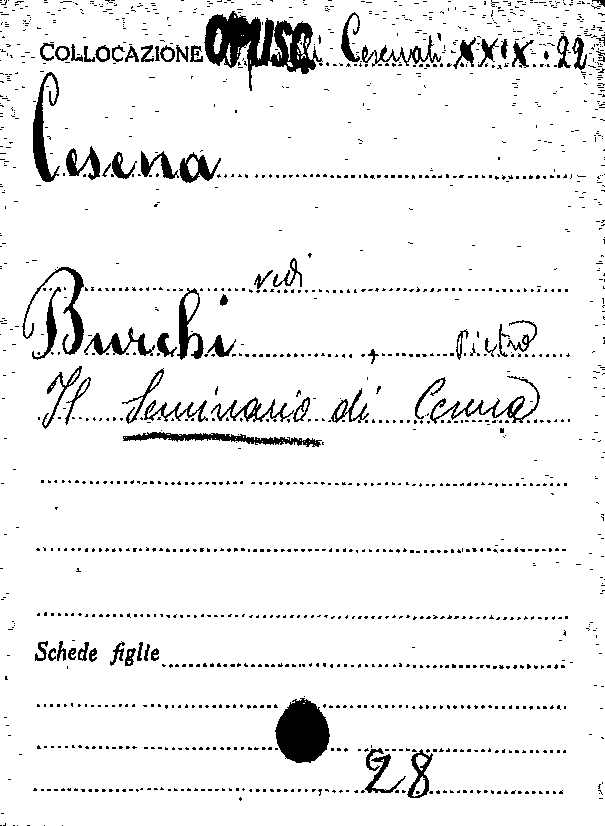 COLLOCAZIONE OPUSC. di Cesenati XXIX.22
Cesena
vedi
Burchi, Pietro
Il Seminario di Cesena
Schede figlie
28